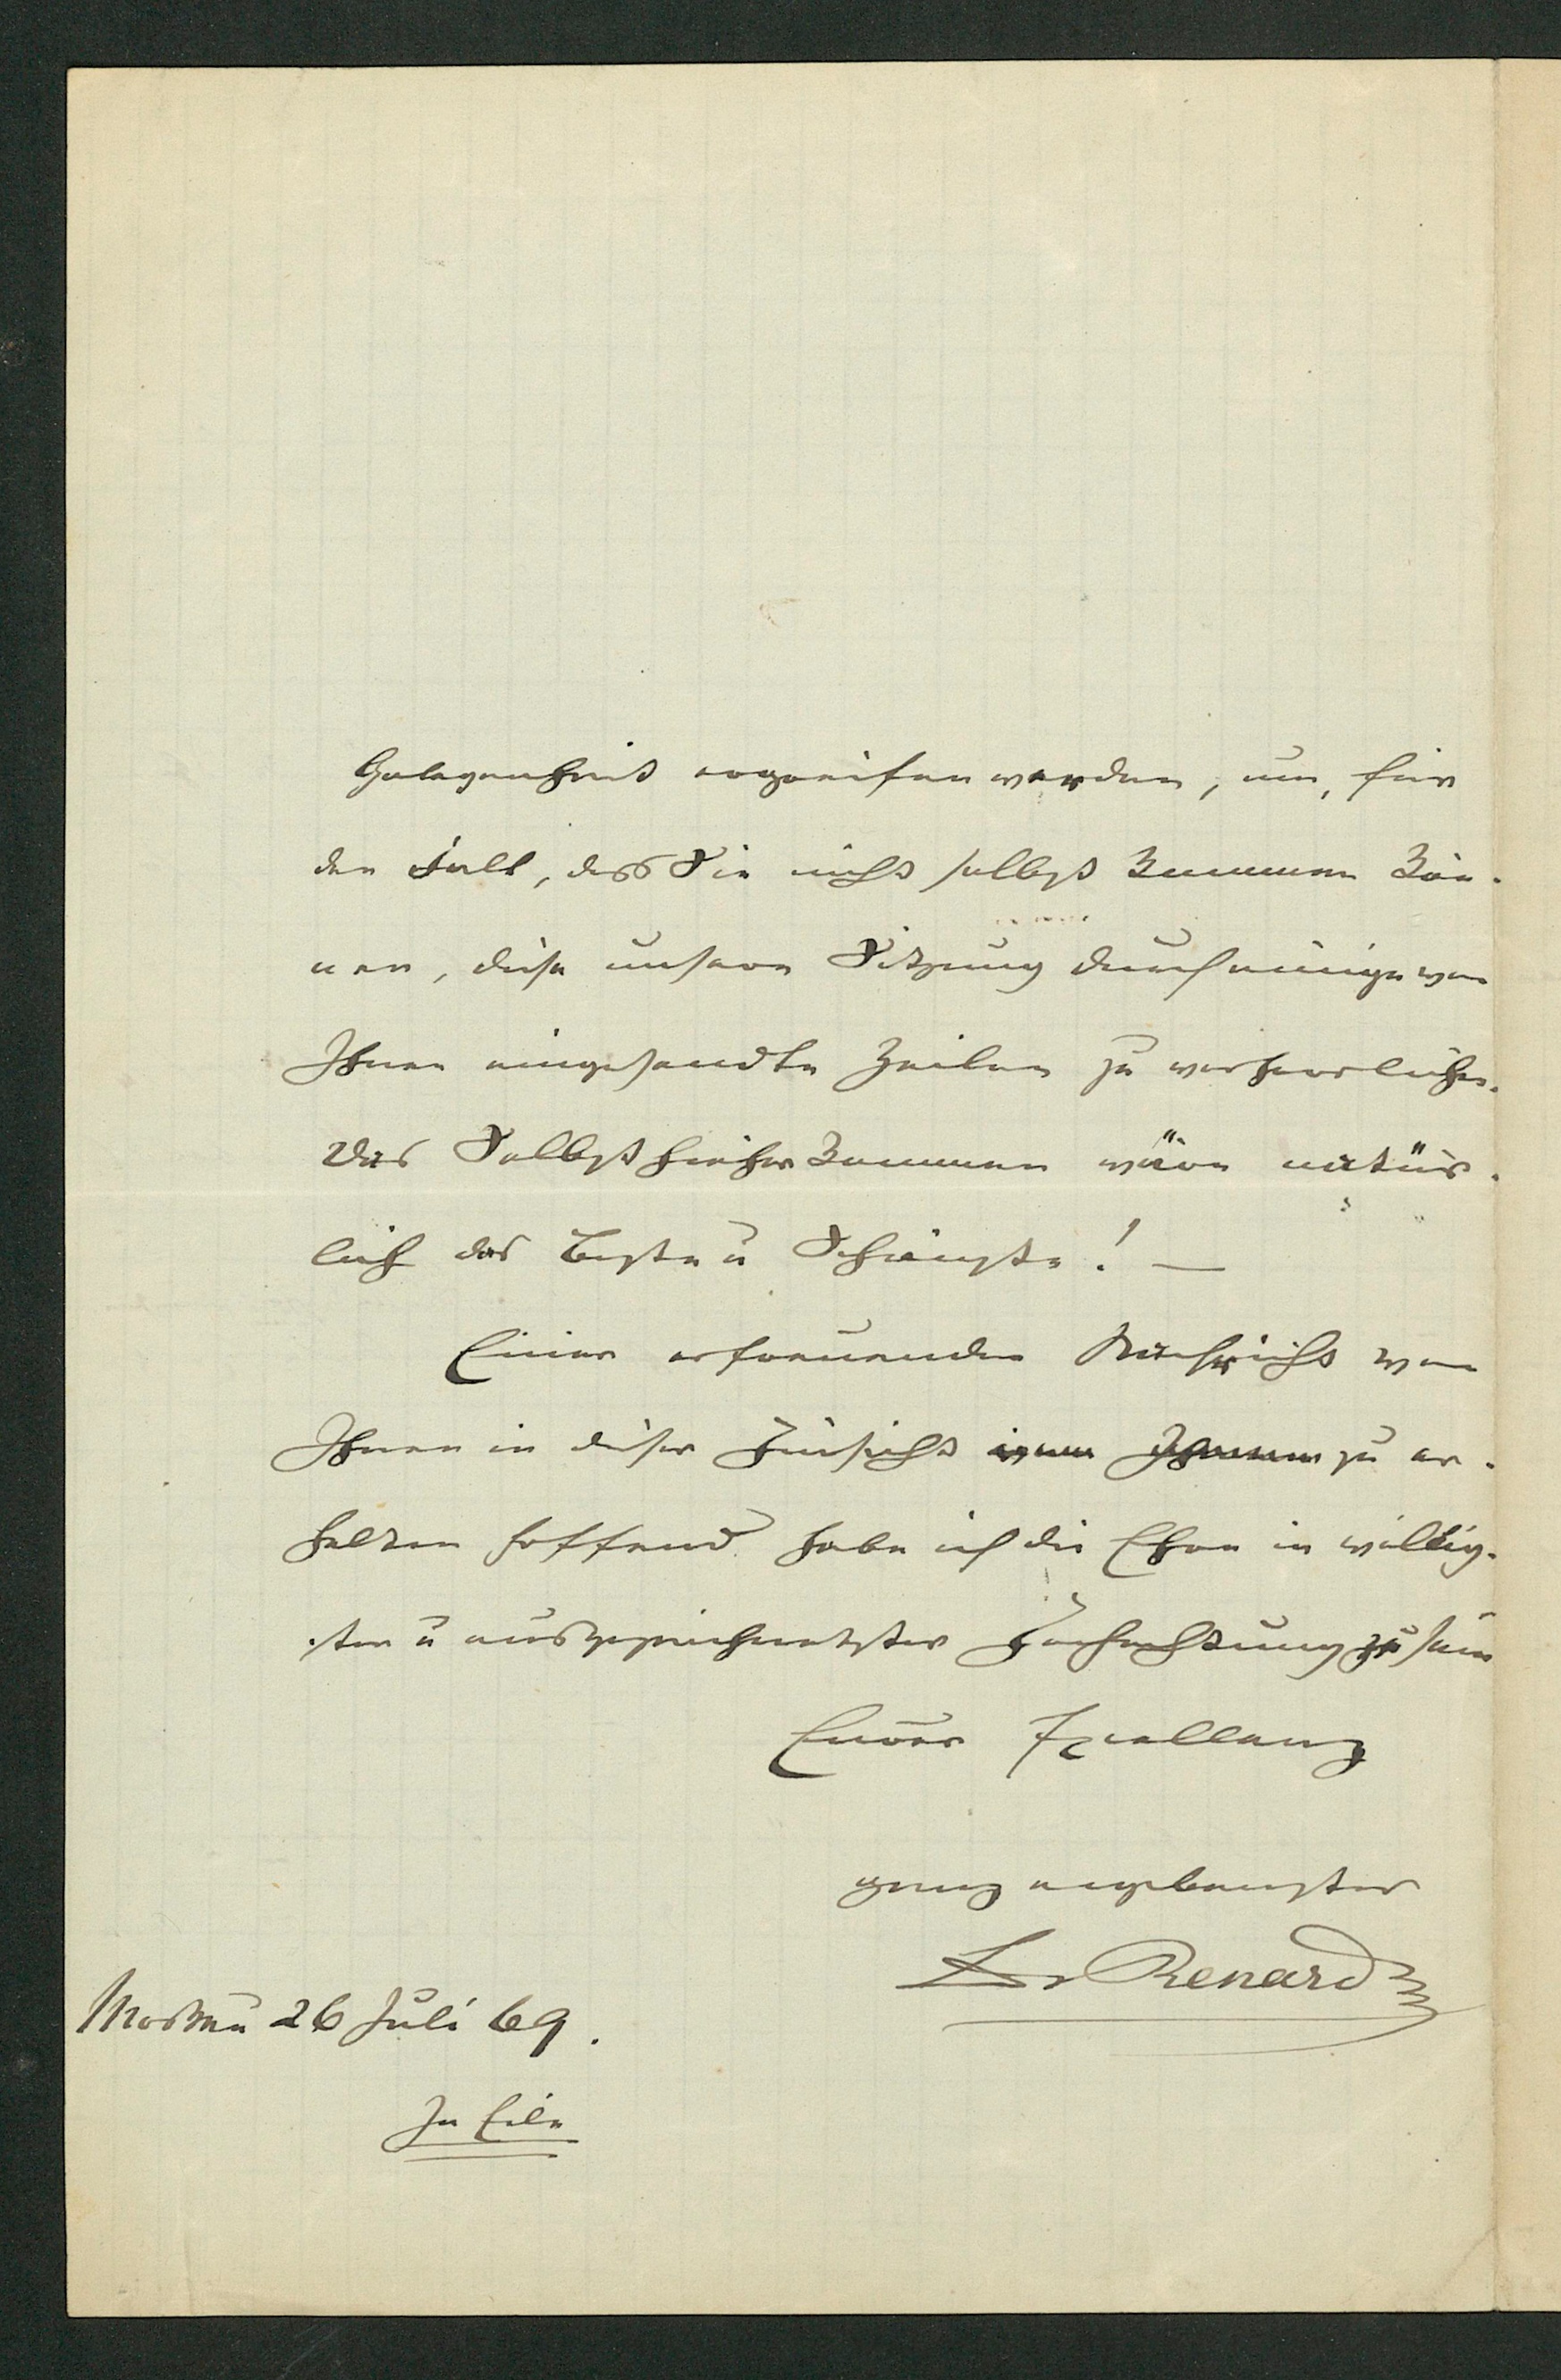 Gelegenheit ergreifen werden, um, für
den Fall, dass Sie nicht selbst kommen kön-
nen, diese unsere Sitzung durch einige von
Ihnen eingesandte Zeilen zu verherrlichen.
Das Selbst hieher kommen wäre natür-
lich das Beste u Schönste! —
Einer erfreuenden Nachricht von
Ihnen in dieser Hinsicht von Ihnen zu er-
halten hoffend habe ich die Ehre in völlig-
ster u ausgezeichnetster Hochachtung zu sein
Eurer Excellenz
ganz ergebenster
Dr Renard
Moskau 26 Juli 69.
In Eile